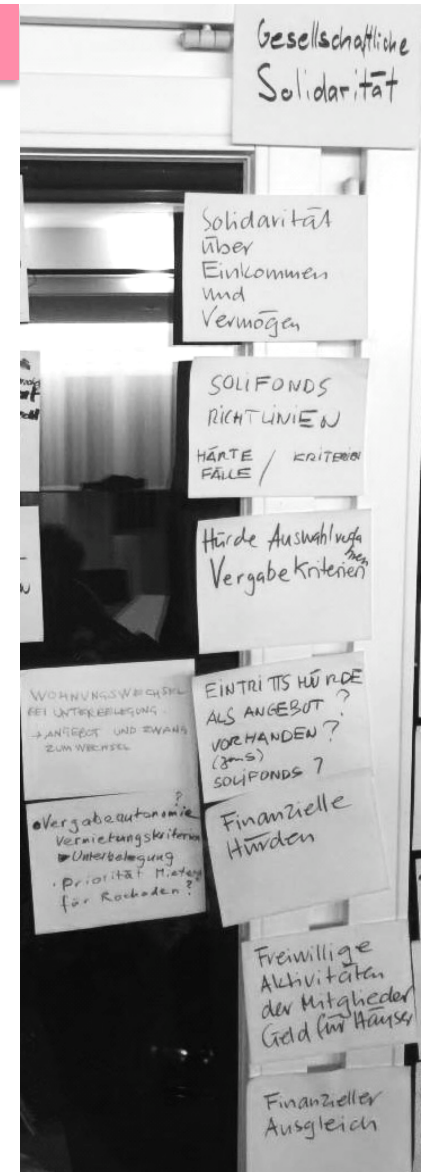 Gesellschaftliche
Solidarität
Solidarität
über
Einkommen
und
Vermögen
SOLIFONDS
RICHTLINIEN
HÄRTE
FÄLLE / KRITERIEN
Hürde Auswahlverfahren
Vergabekriterien
WOHNUNGSWECHSEL
BEI UNTERBELEGUNG.
→ ANGEBOT UND ZWANG
ZUM WECHSEL
EINTRITTSHÜRDE
ALS ANGEBOT ?
VORHANDEN ?
SOLIFONDS ?
?
• Vergabeautonomie
Vermietungskriterien
Unterbelegung
• Priorität Mieter
für Rochaden ?
Finanzielle
Hürden
Freiwillige
Aktivitäten
der Mitglieder
Geld für Häuser
Finanzieller
Ausgleich